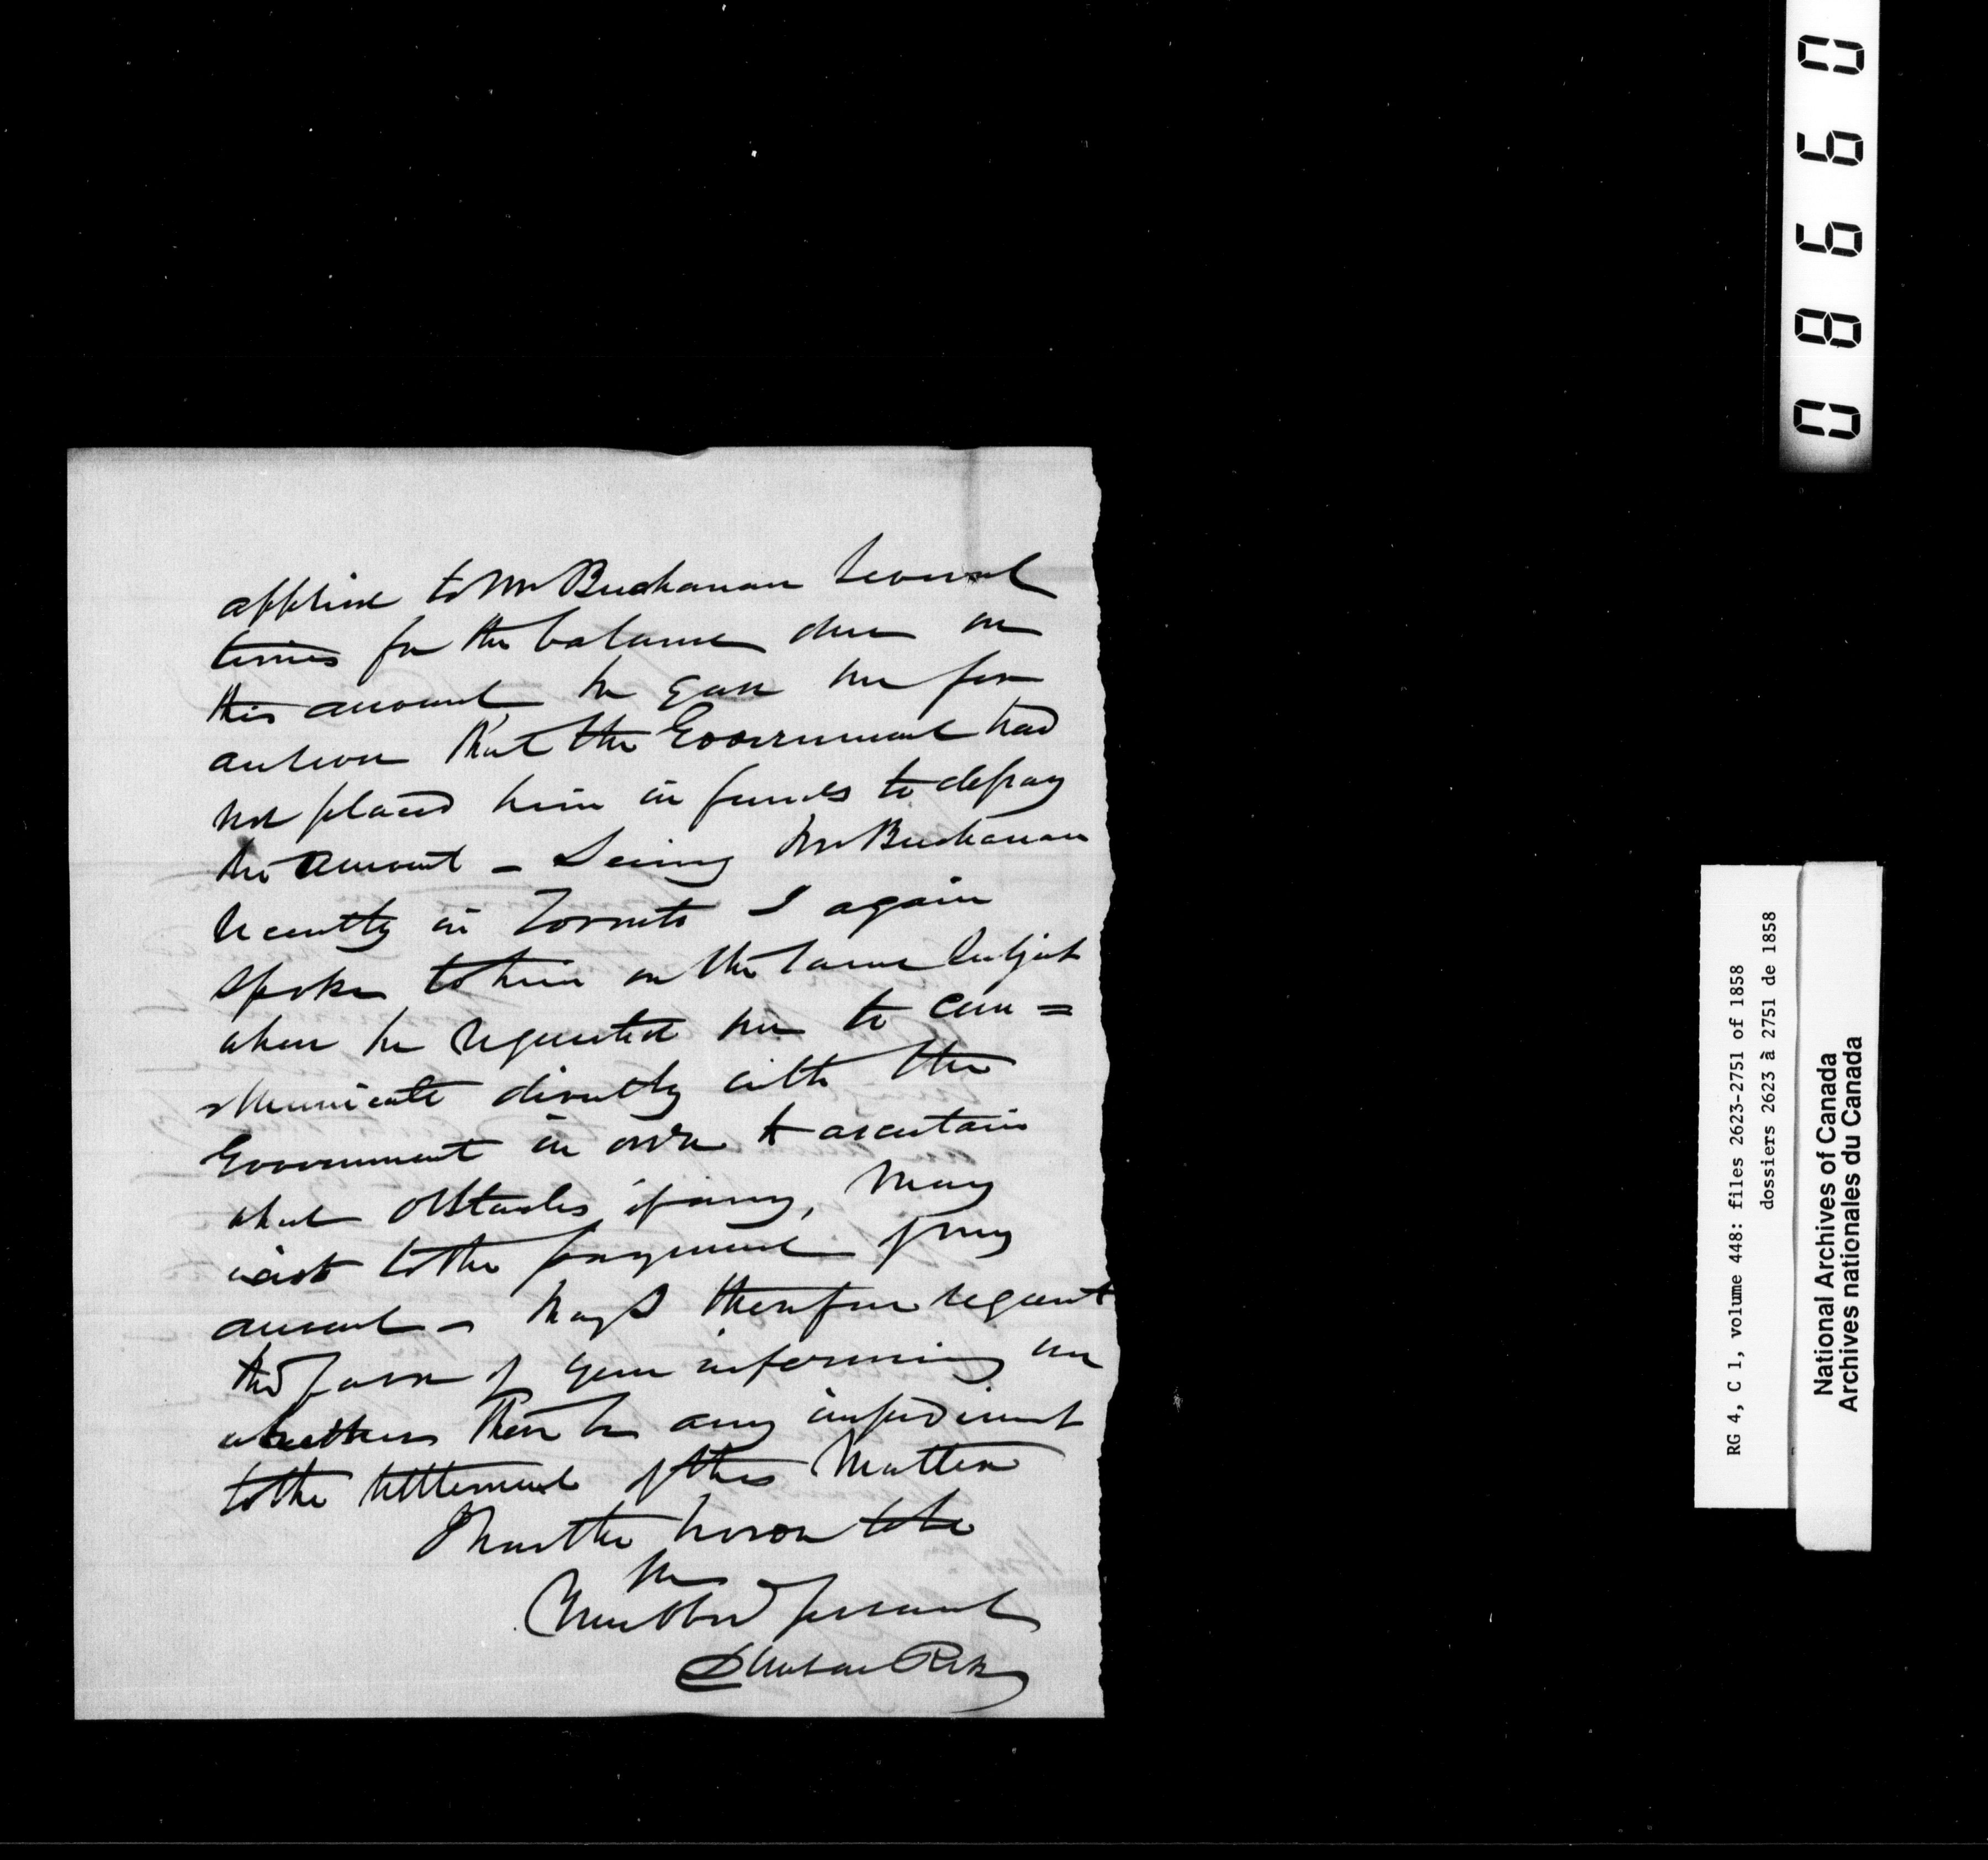 applied to Mr Buchanan several
times for the balance due on
this account, he gave me for
answer that the Government had
not placed him in funds to defray
the amount – Seeing Mr Buchanan
recently in Toronto I again
spoke to him on the same subject
when he requested me to com=
=municate directly with the
Government in order to ascertain
what obstacles if any, may
exist to the payment of my
account – May I therefore request
the favor of your informing me
whether there be any impediment
to the settlement of this matter
I have the honor to be
Sir
Your Obed Servant
08660
RG 4, C 1, volume 448: files 2623-2751 of 1858
dossiers 2623 à 2751 de 1858
National Archives of Canada
Archives nationales du Canada